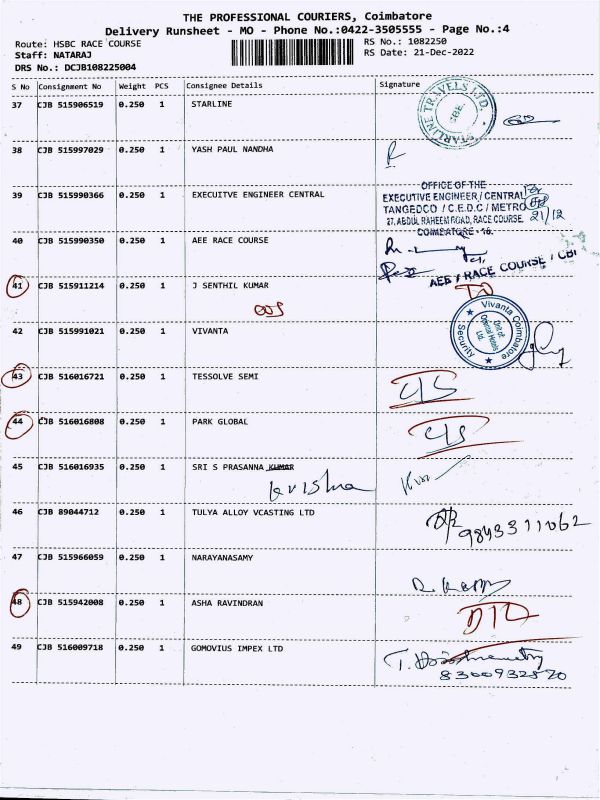 THE PROFESSIONAL COURIERS, Coimbatore
Delivery Runsheet - MO - Phone No.:0422-3505555 - Page No.:4
Route: HSBC RACE COURSE
RS No.: 1082250
Staff: NATARAJ
RS Date: 21-Dec-2022
DRS No.: DCJB108225004
S No Consignment No Weight PCS Consignee Details Signature
37 CJB 515906519 0.250 1 STARLINE
STARLINE TRAVELS LTD.
CBE.
38 CJB 515997029 0.250 1 YASH PAUL NANDHA
39 CJB 515990366 0.250 1 EXECUITVE ENGINEER CENTRAL
OFFICE OF THE
EXECUTIVE ENGINEER / CENTRAL
TANGEDCO / C.E.D.C / METRO
27, ABDUL RAHEEM ROAD, RACE COURSE,
COIMBATORE - 18.
21/12
40 CJB 515990350 0.250 1 AEE RACE COURSE
AEE / RACE COURSE / CBE
41 CJB 515911214 0.250 1 J SENTHIL KUMAR
OOS
42 CJB 515991021 0.250 1 VIVANTA
Vivanta Coimbatore
Unit of
Oriental Hotels
Ltd.
Security
43 CJB 516016721 0.250 1 TESSOLVE SEMI
C/S
44 CJB 516016808 0.250 1 PARK GLOBAL
C/S
45 CJB 516016935 0.250 1 SRI S PRASANNA KUMAR
krishna
46 CJB 89044712 0.250 1 TULYA ALLOY VCASTING LTD
9843311062
47 CJB 515966059 0.250 1 NARAYANASAMY
48 CJB 515942008 0.250 1 ASHA RAVINDRAN
49 CJB 516009718 0.250 1 GOMOVIUS IMPEX LTD
8300932570